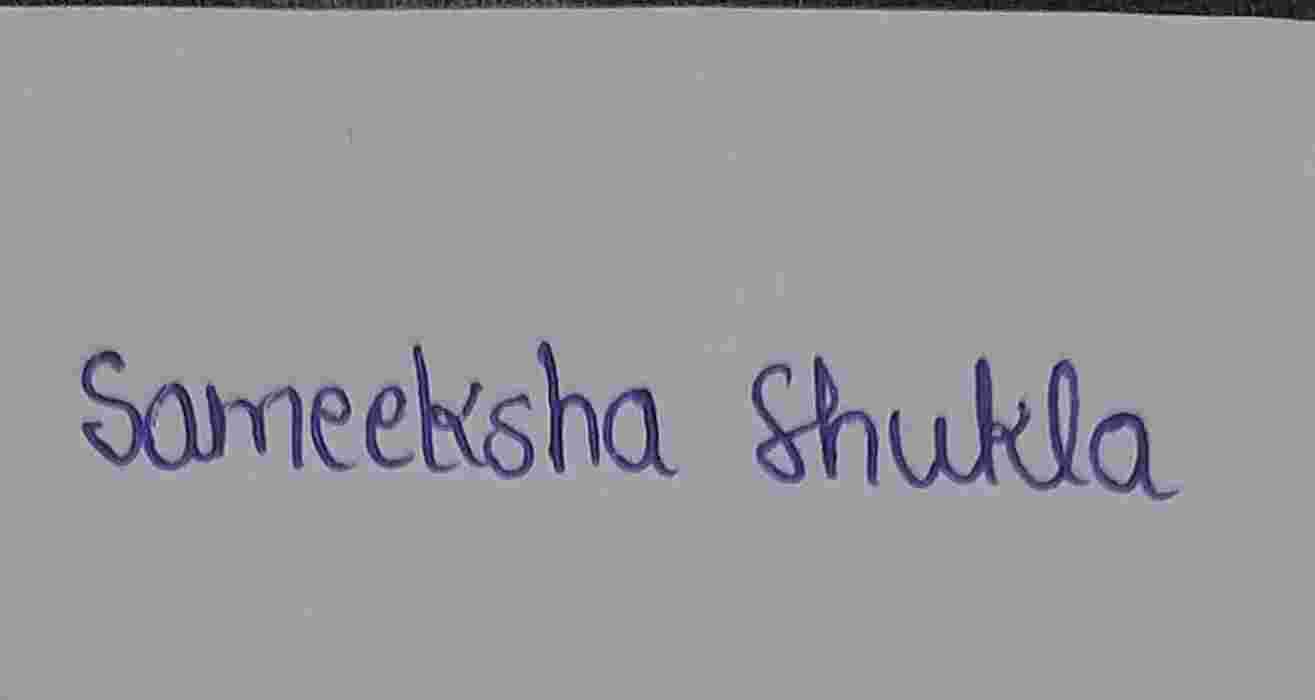 Sameeksha Shukla